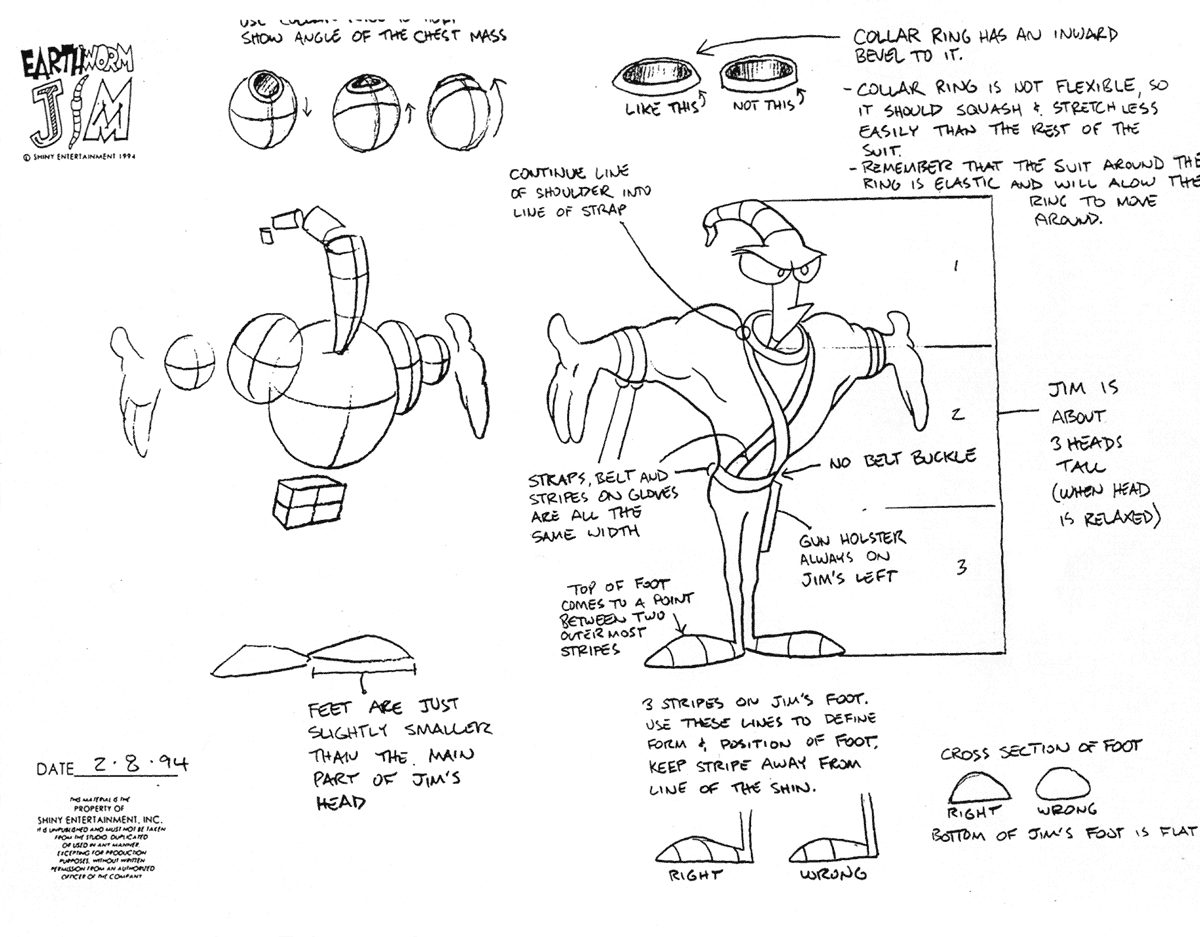 SHOW ANGLE OF THE CHEST MASS
EARTHWORM
JIM
© SHINY ENTERTAINMENT 1994
LIKE THIS
NOT THIS
COLLAR RING HAS AN INWARD
BEVEL TO IT.
- COLLAR RING IS NOT FLEXIBLE, SO
IT SHOULD SQUASH & STRETCH LESS
EASILY THAN THE REST OF THE
SUIT.
- REMEMBER THAT THE SUIT AROUND THE
RING IS ELASTIC AND WILL ALOW THE
RING TO MOVE
AROUND.
CONTINUE LINE
OF SHOULDER INTO
LINE OF STRAP
1
2
3
JIM IS
ABOUT
3 HEADS
TALL
(WHEN HEAD
IS RELAXED)
NO BELT BUCKLE
STRAPS, BELT AND
STRIPES ON GLOVES
ARE ALL THE
SAME WIDTH
GUN HOLSTER
ALWAYS ON
JIM'S LEFT
TOP OF FOOT
COMES TO A POINT
BETWEEN TWO
OUTERMOST
STRIPES
FEET ARE JUST
SLIGHTLY SMALLER
THAN THE MAIN
PART OF JIM'S
HEAD
3 STRIPES ON JIM'S FOOT.
USE THESE LINES TO DEFINE
FORM & POSITION OF FOOT.
KEEP STRIPE AWAY FROM
LINE OF THE SHIN.
RIGHT
WRONG
CROSS SECTION OF FOOT
RIGHT
WRONG
BOTTOM OF JIM'S FOOT IS FLAT
DATE 2.8.94
THIS MATERIAL IS THE
PROPERTY OF
SHINY ENTERTAINMENT, INC.
IT IS UNPUBLISHED AND MUST NOT BE TAKEN
FROM THE STUDIO, DUPLICATED
OR USED IN ANY MANNER
EXCEPTING FOR PRODUCTION
PURPOSES, WITHOUT WRITTEN
PERMISSION FROM AN AUTHORIZED
OFFICER OF THE COMPANY